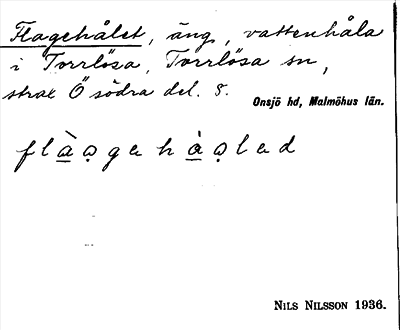 Flagehålet, äng, vattenhåla
i Torrlösa, Torrlösa sn,
strax Ö södra del. 8.
Onsjö hd, Malmöhus län.
flàǫgehàǫled
NILS NILSSON 1936.